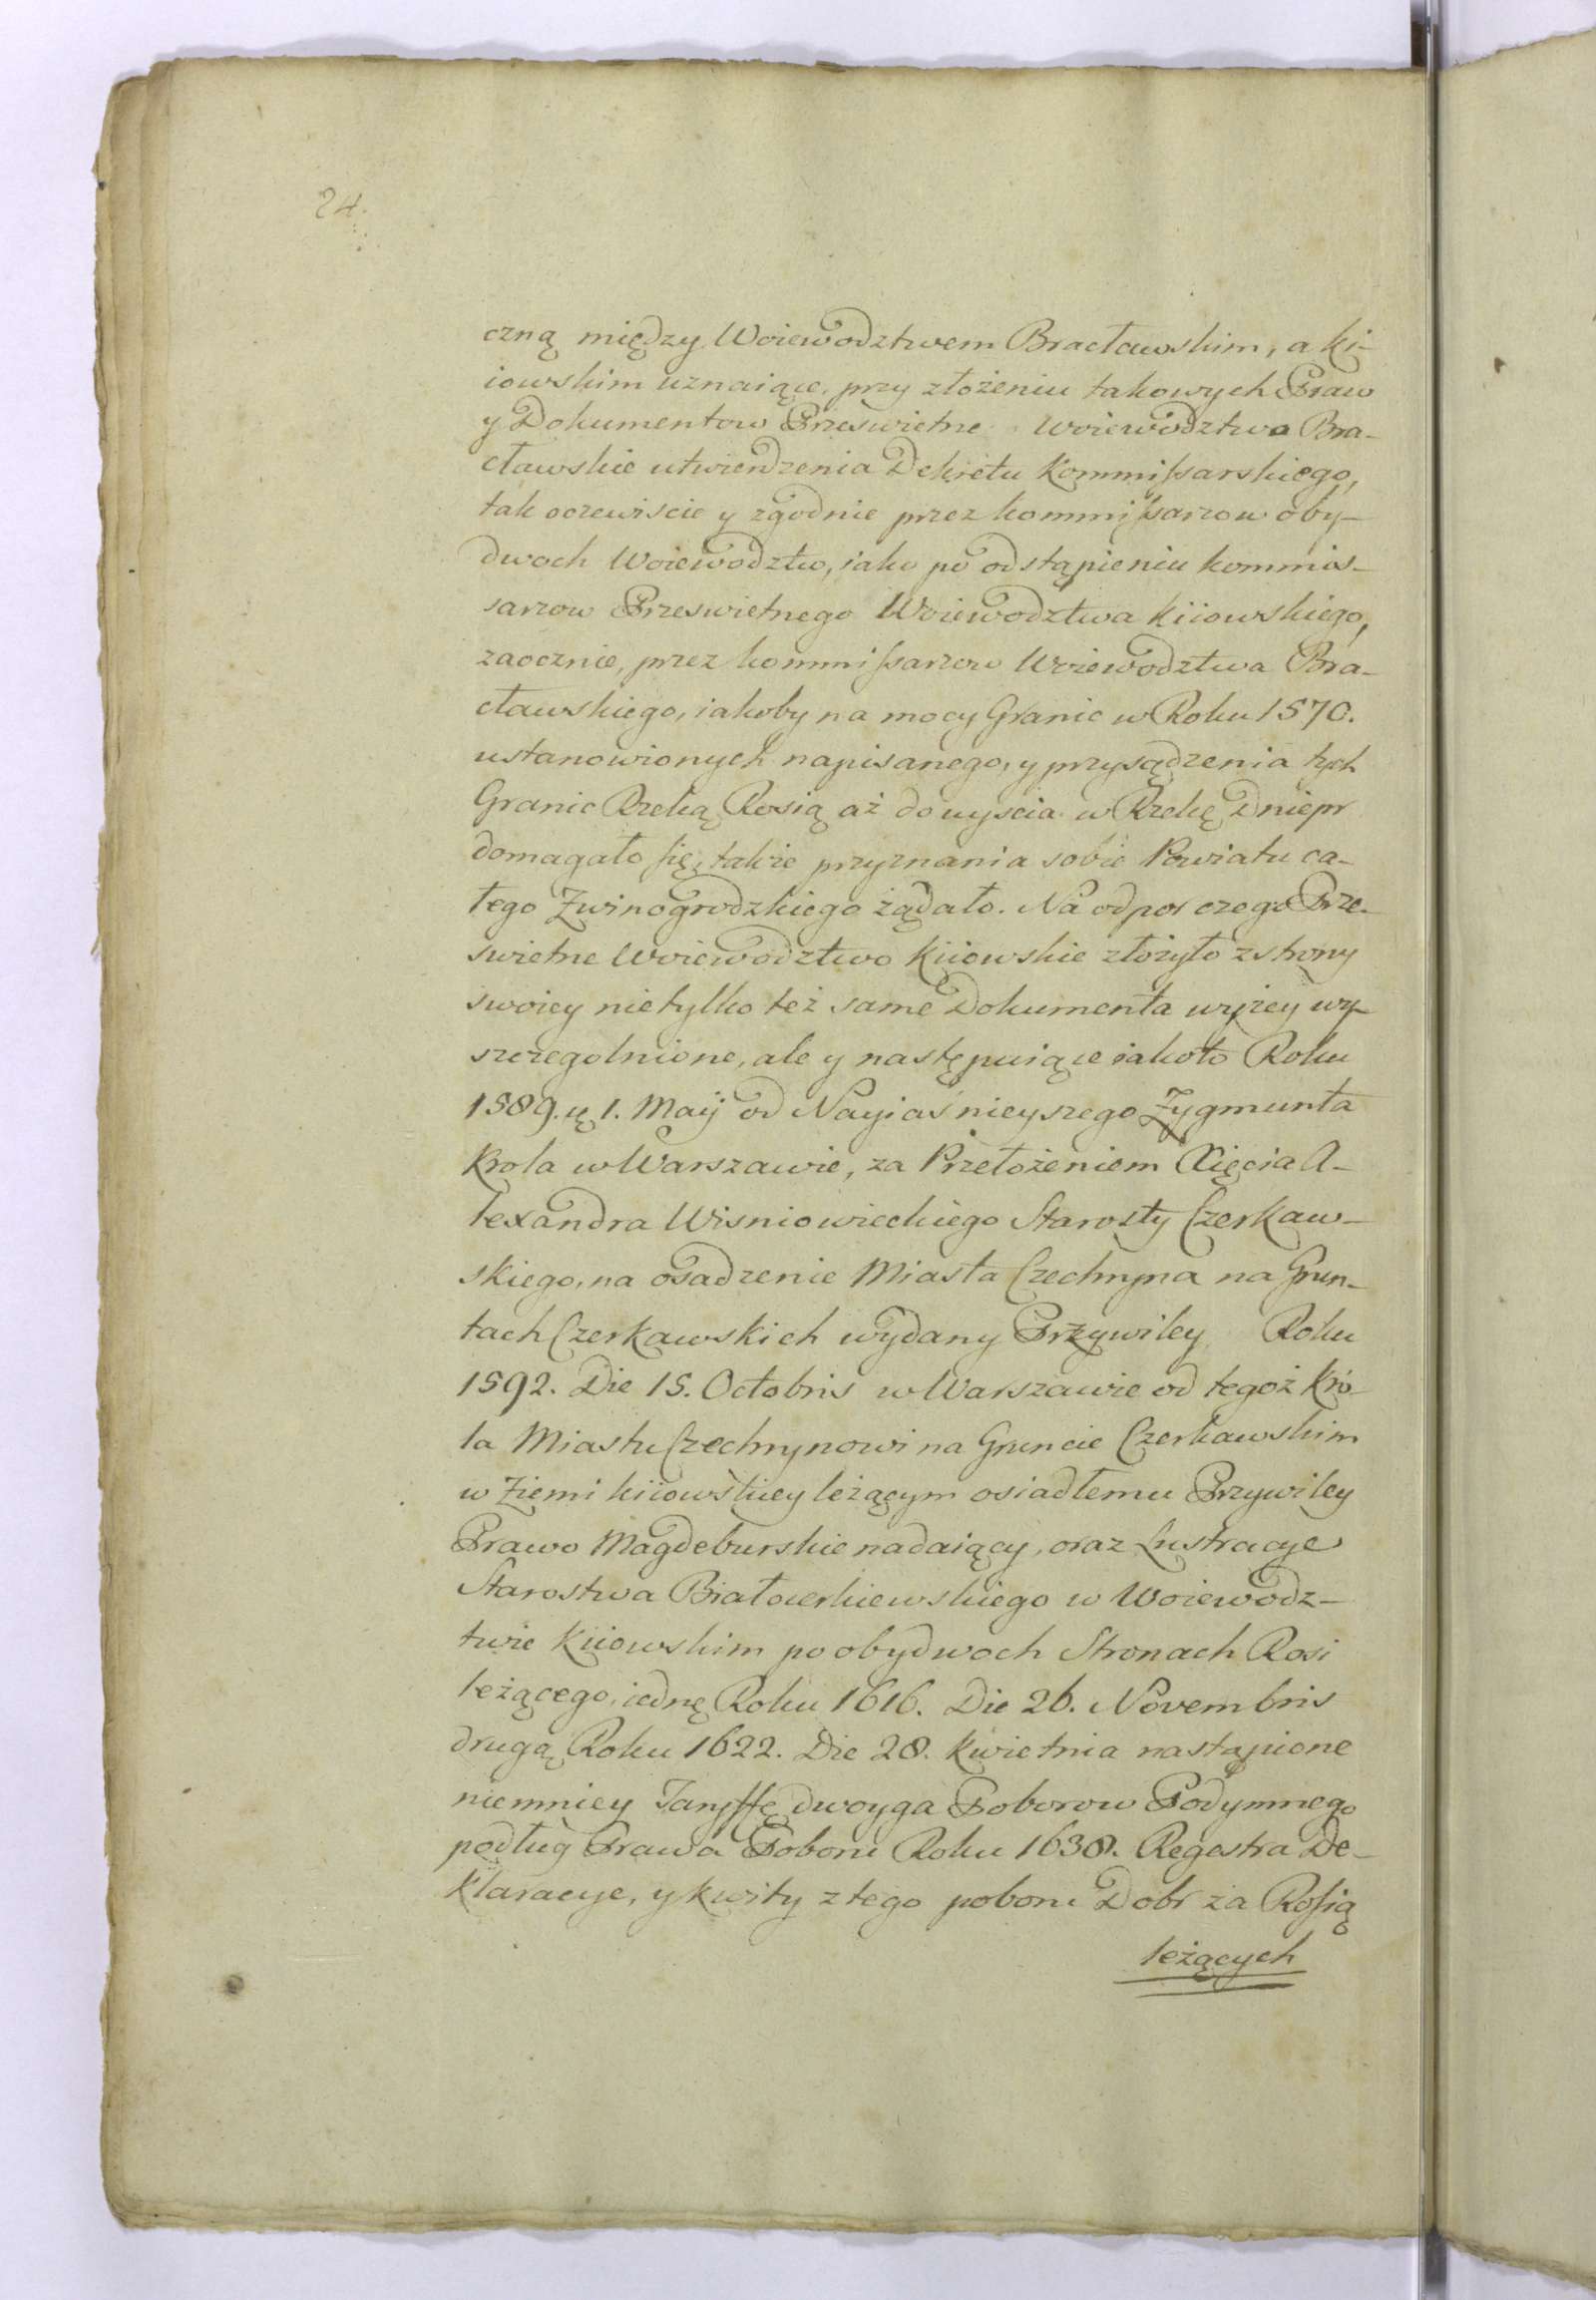 24.
czną między Woiewodztwem Bracławskim, a ki-
iowskim uznaiące, przy złożeniu takowych Praw
y Dokumentow Prześwietne Woiewodztwo Bra-
cławskie utwierdzenia Dekretu Kommissarskiego,
tak oczewiscie y zgodnie przez kommissarzow oby-
dwoch Woiewodztw, iako po odstąpieniu kommis-
sarzow Przeswietnego Woiewodztwa kiiowskiego,
zaocznie, przez kommissarzow Woiewodztwa Bra-
cławskiego, iakoby na mocy Granic w Roku 1570.
ustanowionych napisanego, y przysądzenia tych
Granic Rzeką Rosią aż do uyscia w Rzekę Dniepr
domagało się, takie przyznania sobie Powiatu ca-
łego Zwinogrodzkiego żądało. Na odpor czego Prze-
swietne Woiewodztwo Kiiowskie złożyło z strony
swoiey nietylko też same Dokumenta wyżey wy-
szczegolnione, ale y następuiące iakoto Roku
1589. 1. Maij od Nayiaśnieyszego Zygmunta
Krola w Warszawie, za Przełożeniem Xięcia A-
lexandra Wisniowieckiego Starosty Czerkaw-
skiego, na osadzenie Miasta Czechryna na Grun-
tach Czerkawskich wydany Przywiley Roku
1592. Die 15. Octobris w Warszawie od tegoż Kró-
la Miastu Czechrynowi na Gruncie Czerkawskim
w Ziemi kiiowskiey leżącym osiadłemu Przywiley
Prawo Magdeburskie nadaiący, oraz Lustracye
Starostwa Białocerkiewskiego w Woiewodz-
twie Kiiowskim po obydwoch Stronach Rosi
leżącego, iednę Roku 1616. Die 26. Novembris
drugą Roku 1622. Die 28. Kwietnia nastąpione
niemniey Taryffę dwoyga Poborow Podymnego
podług Prawa Poboru Roku 1638. Regestra De-
klaracye, y kwity z tego poboru Dobr za Rosią
leżących